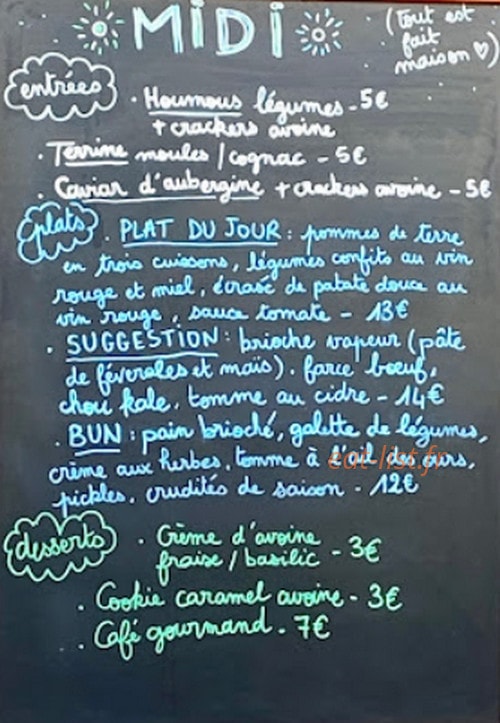 MIDI
(tout est
fait
maison ♡)
entrées
· Houmous légumes - 5€
+ crackers avoine
· Terrine moules / cognac - 5€
· Caviar d'aubergine + crackers avoine - 5€
plats
· PLAT DU JOUR : pommes de terre
en trois cuissons, légumes confits au vin
rouge et miel, écrasé de patate douce au
vin rouge, sauce tomate - 13€
· SUGGESTION : brioche vapeur (pâte
de féveroles et maïs). farce bœuf,
chou kale, tomme au cidre - 14€
· BUN : pain brioché, galette de légumes,
crème aux herbes, tomme à l'ail des ours,
eat-list.fr
pickles, crudités de saison - 12€
desserts
· Crème d'avoine
fraise / basilic - 3€
· Cookie caramel avoine - 3€
· Café gourmand - 7€